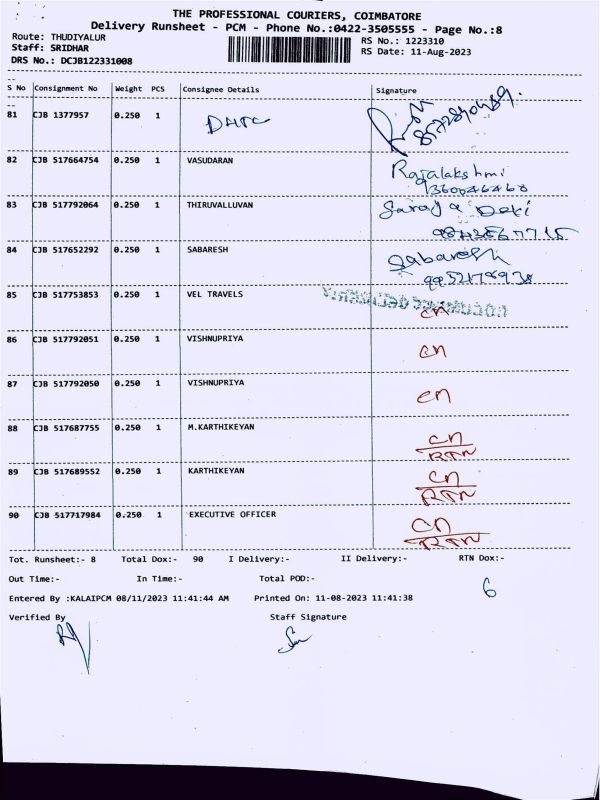 THE PROFESSIONAL COURIERS, COIMBATORE
Delivery Runsheet - PCM - Phone No.:0422-3505555 - Page No.:8
Route: THUDIYALUR RS No.: 1223310
Staff: SRIDHAR RS Date: 11-Aug-2023
DRS No.: DCJB122331008
S No Consignment No Weight PCS Consignee Details Signature
81 CJB 1377957 0.250 1
82 CJB 517664754 0.250 1 VASUDARAN Rajalakshmi
9360046468
83 CJB 517792064 0.250 1 THIRUVALLUVAN Devi
84 CJB 517652292 0.250 1 SABARESH Sabaresh
85 CJB 517753853 0.250 1 VEL TRAVELS cn
86 CJB 517792051 0.250 1 VISHNUPRIYA cn
87 CJB 517792050 0.250 1 VISHNUPRIYA cn
88 CJB 517687755 0.250 1 M.KARTHIKEYAN CN
RTN
89 CJB 517689552 0.250 1 KARTHIKEYAN CN
RTN
90 CJB 517717984 0.250 1 EXECUTIVE OFFICER CN
RTN
Tot. Runsheet:- 8 Total Dox:- 90 I Delivery:- II Delivery:- RTN Dox:-
6
Out Time:- In Time:- Total POD:-
Entered By :KALAIPCM 08/11/2023 11:41:44 AM Printed On: 11-08-2023 11:41:38
Verified By Staff Signature